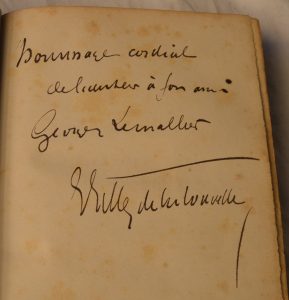 hommage cordial
de l'auteur à son ami
Georges Lemallier
de la